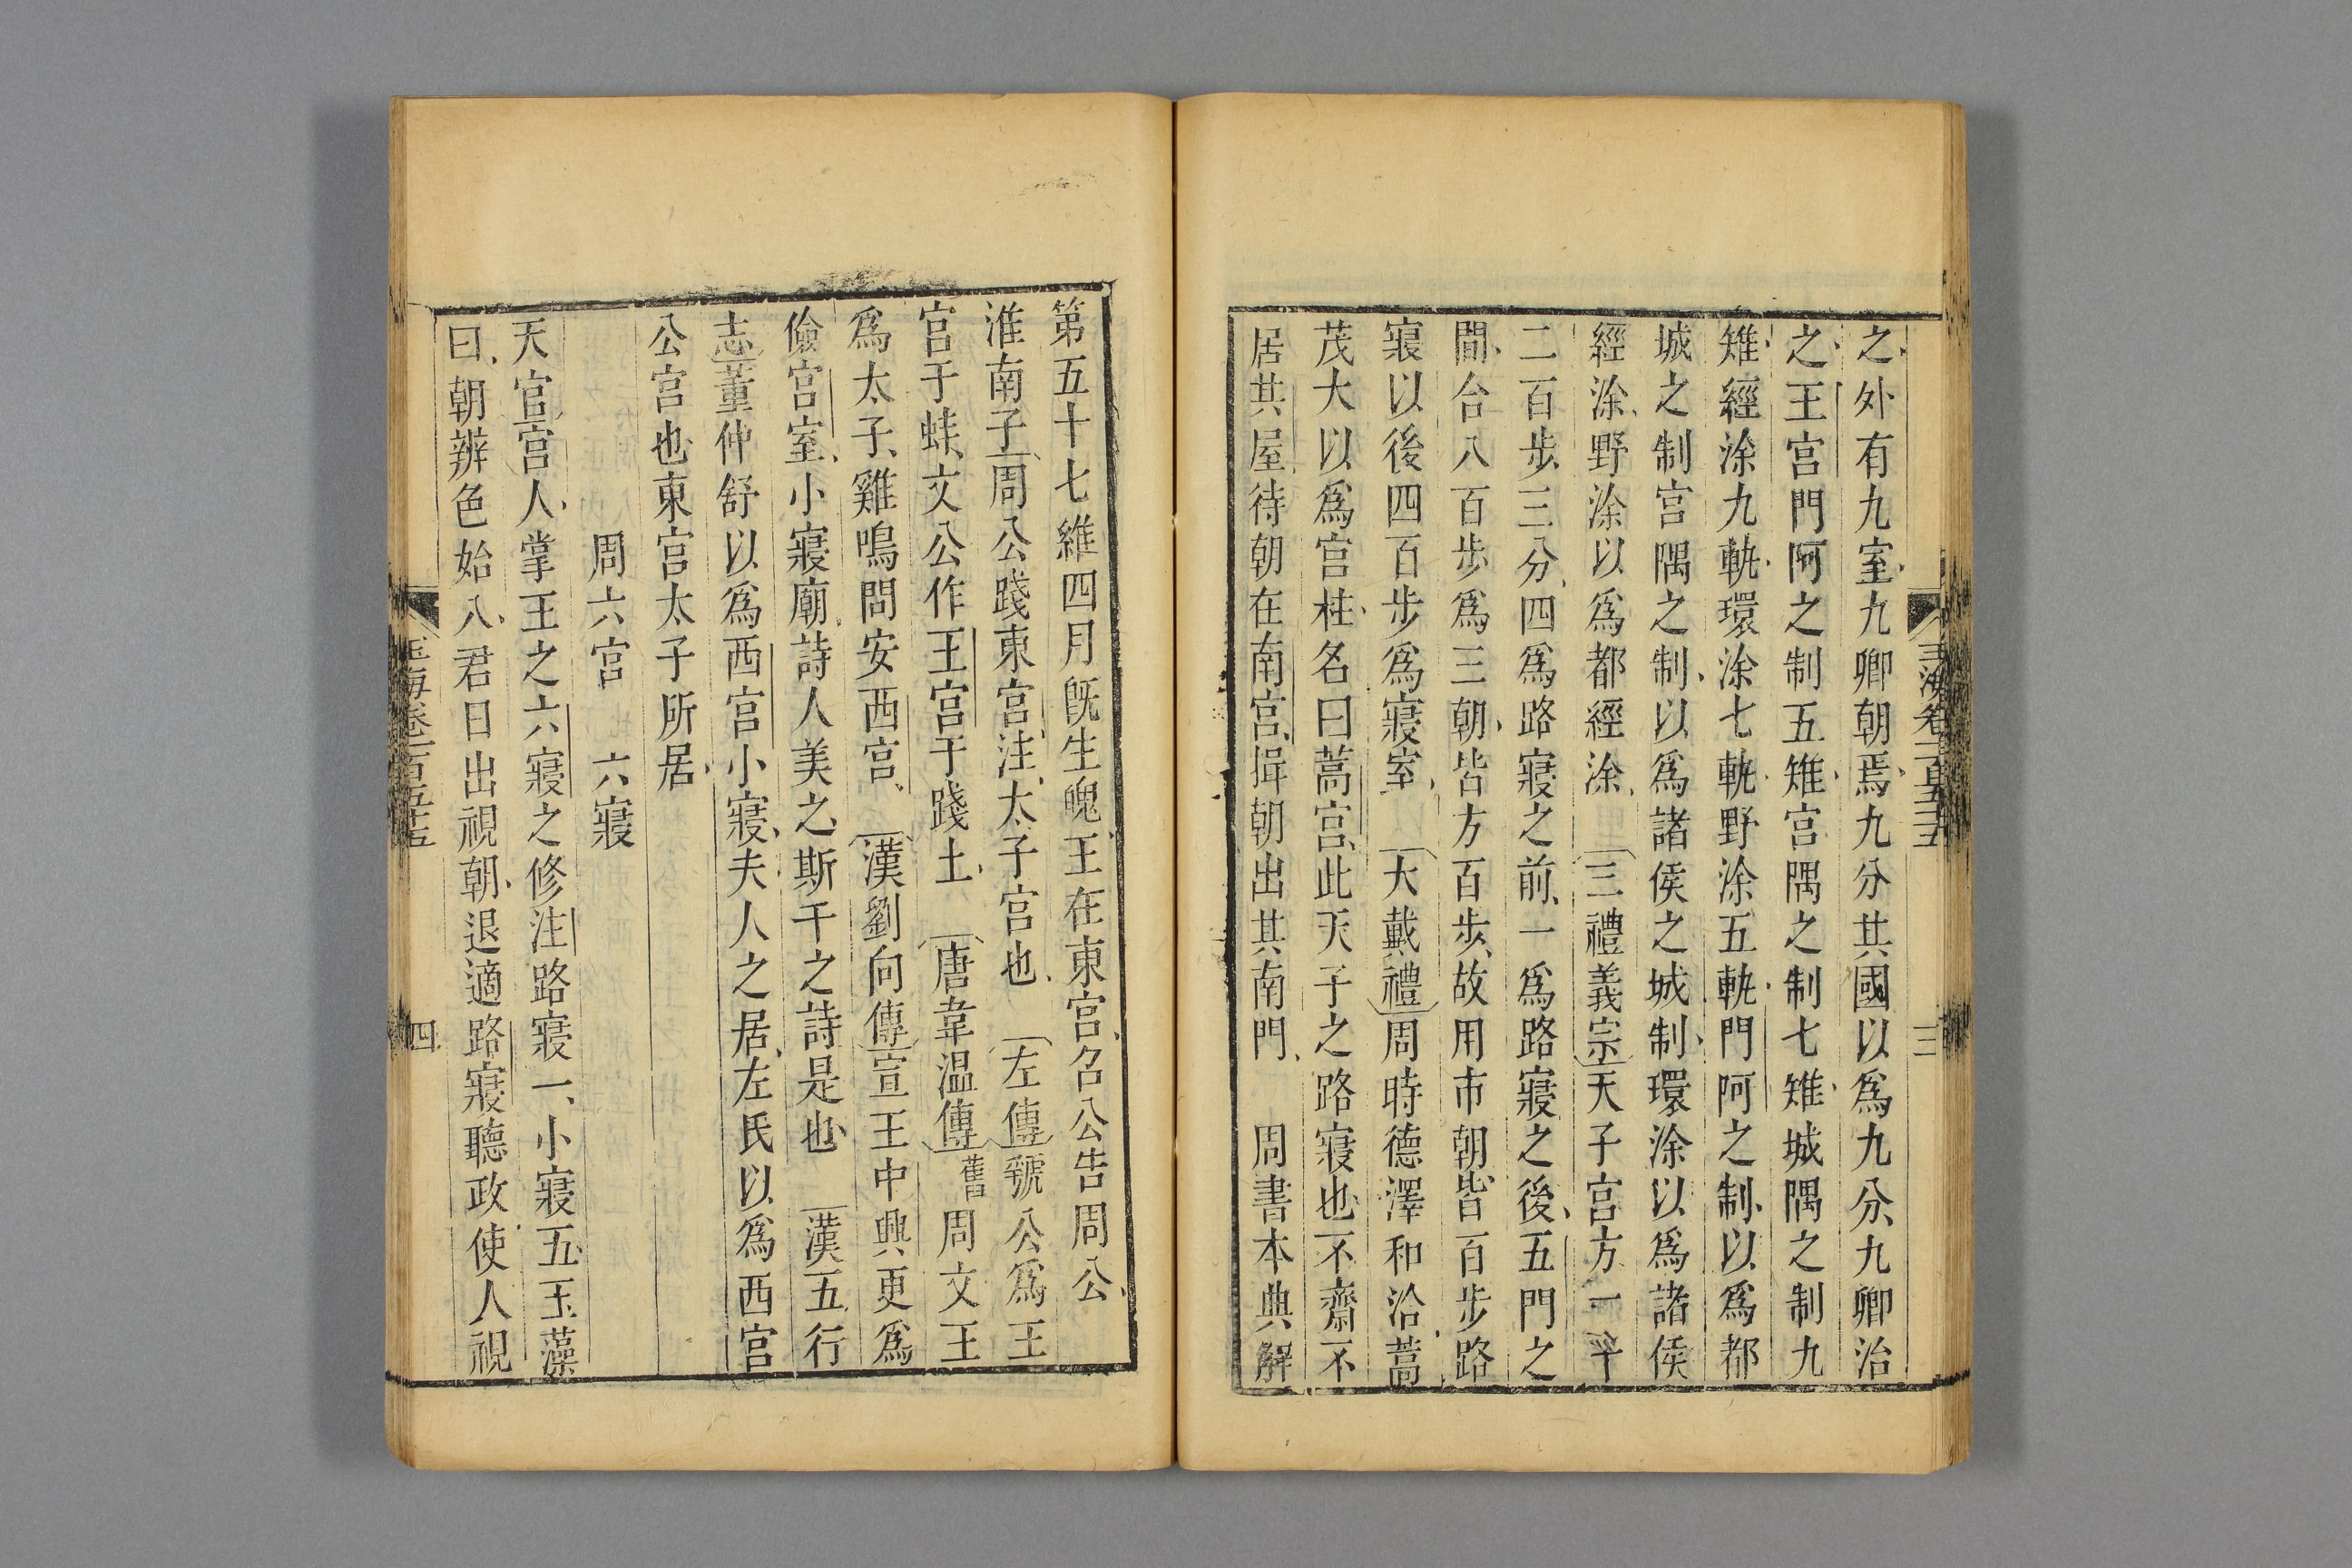 之外有九室九卿朝焉九分其國以爲九分九卿治
之王宫門阿之制五雉宫隅之制七雉城隅之制九
雉經涂九軌環涂七軌野涂五軌門阿之制以爲都
城之制宫隅之制以爲諸侯之城制環涂以爲諸侯
經涂野涂以爲都經涂 三禮義宗天子宫方一千
二百步三分四爲路寢之前一爲路寢之後五門之
間合八百步爲三朝皆方百步故用市朝皆百步路
寢以後四百步爲寢室 大戴禮周時德澤和洽蒿
茂大以爲宫柱名曰蒿宫此天子之路寢也不齋不
居其屋待朝在南宫揖朝出其南門 周書本典解
第五十七維四月旣生魄王在東宫召公告周公
淮南子周公踐東宫注太子宫也 左傳虢公爲王
宫于蚌文公作王宫于踐土 唐韋温傳舊周文王
爲太子雞鳴問安西宫 漢劉向傳宣王中興更爲
儉宫室小寢廟詩人美之斯干之詩是也 漢五行
志董仲舒以爲西宫小寢夫人之居左氏以爲西宫
公宫也東宫太子所居
周六宫 六寢
天官宫人掌王之六寢之修注路寢一小寢五玉藻
曰朝辨色始入君日出視朝退適路寢聽政使人視
玉海卷一百五十五
四